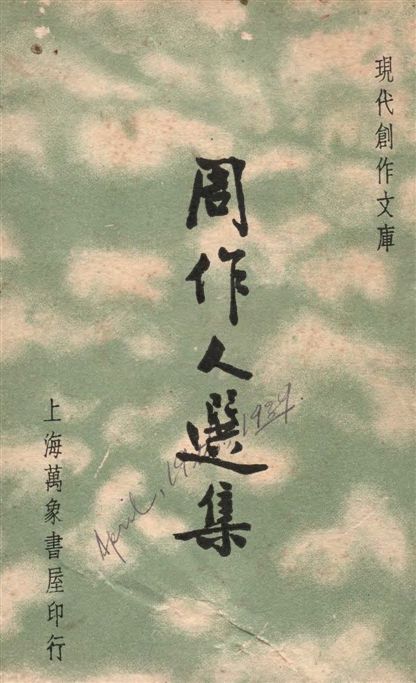 現代創作文庫
周作人選集
April, 1939.
上海萬象書屋印行